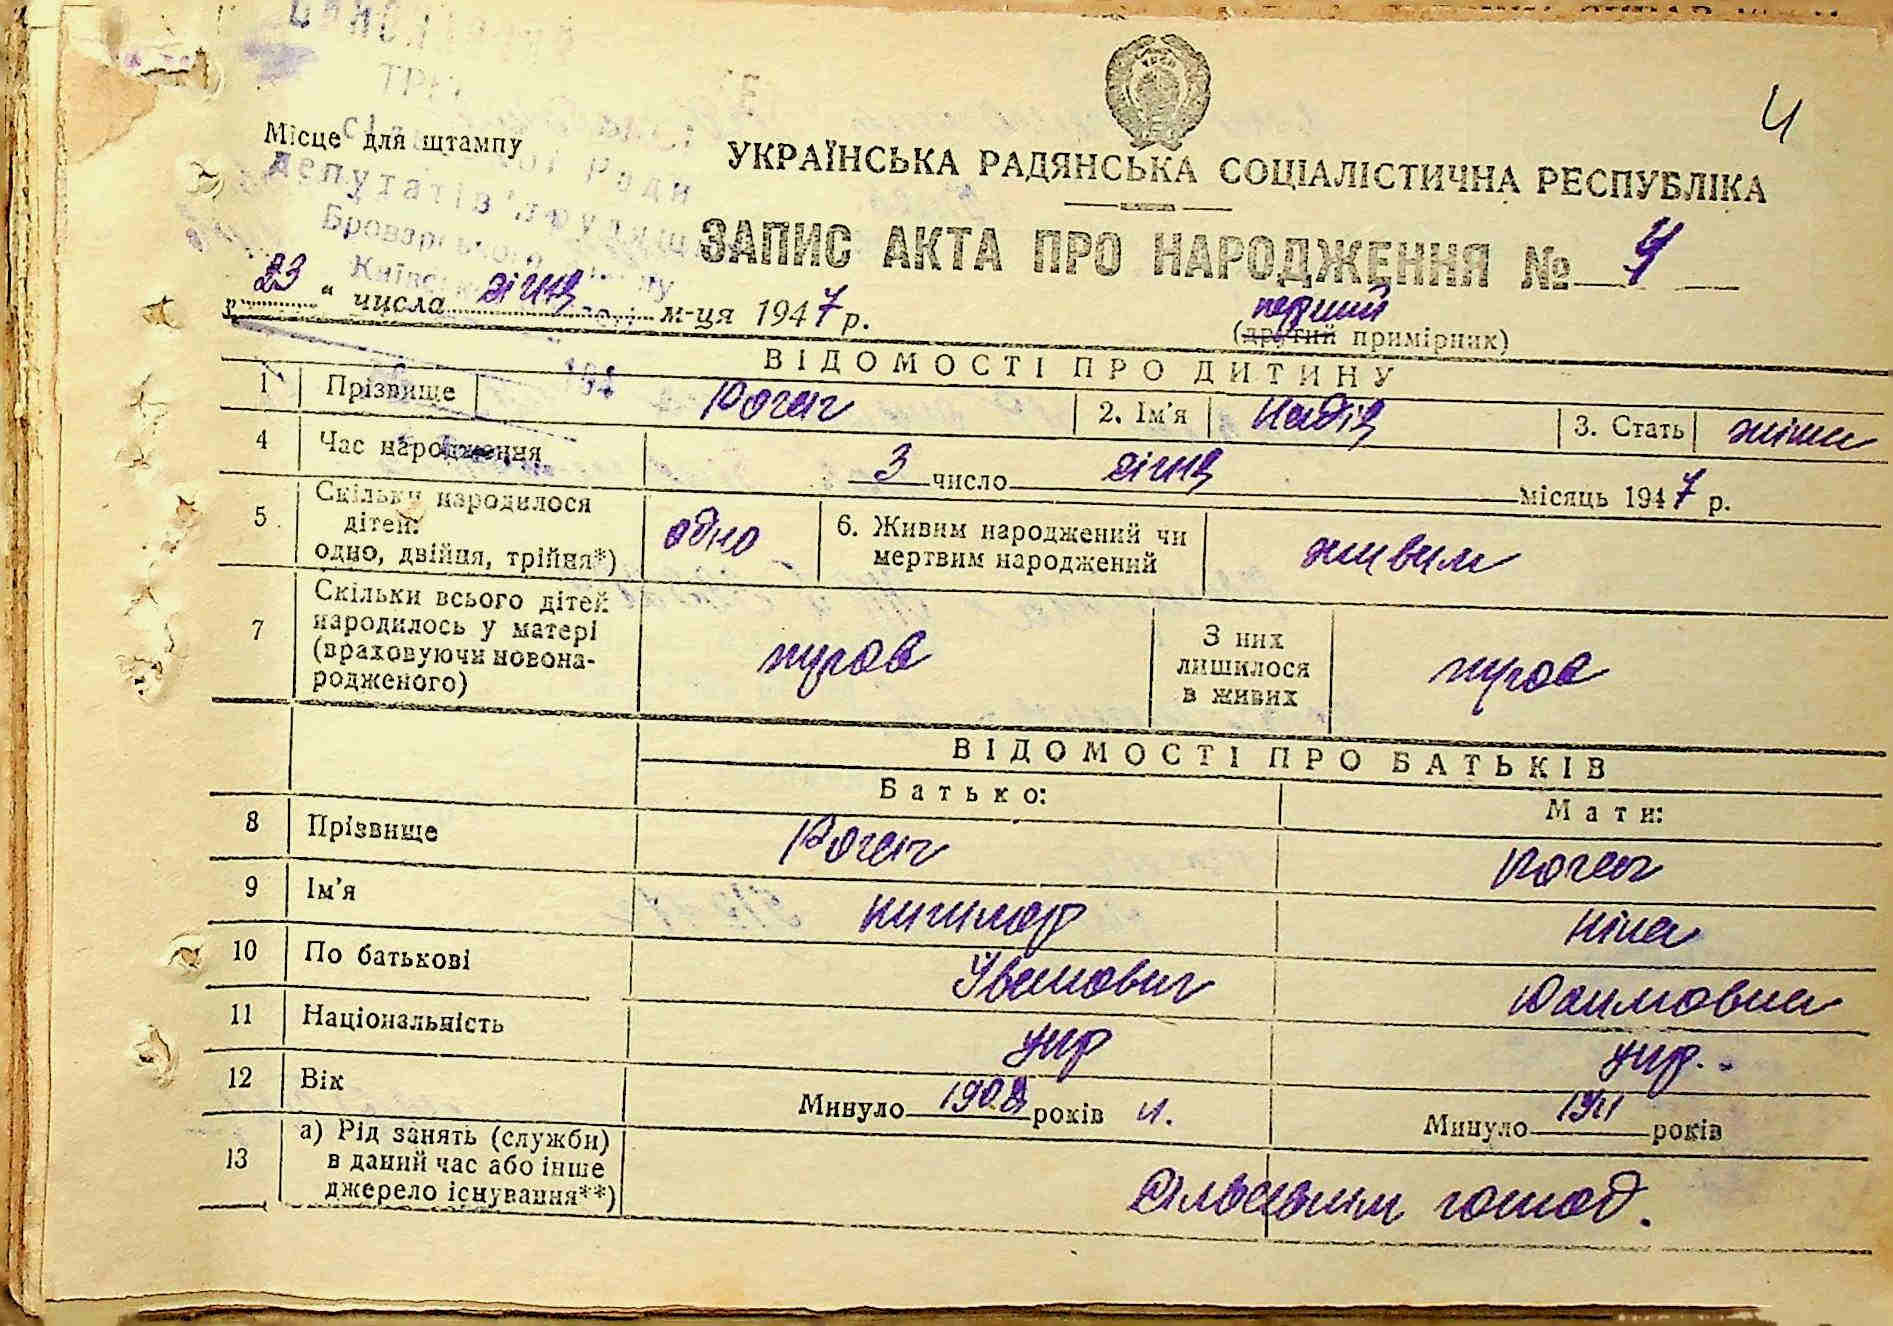 Ч
Місце для штампу
Ради
депутатів трудящ
Броварського
УКРАЇНСЬКА РАДЯНСЬКА СОЦІАЛІСТИЧНА РЕСПУБЛІКА
ЗАПИС АКТА ПРО НАРОДЖЕННЯ № 4
23 " числа січня м-ця 1947 р.
перший
(другий примірник)
ВІДОМОСТІ ПРО ДИТИНУ
1 Прізвище Рогач 2. Ім'я Надія 3. Стать жіноч
4 Час народження 3 число січня місяць 1947 р.
5 Скільки народилося
дітей:
одно, двійня, трійня*) одно 6. Живим народжений чи
мертвим народжений живим
7 Скільки всього дітей
народилось у матері
(враховуючи новона-
родженого)
З них
лишилося
в живих
ВІДОМОСТІ ПРО БАТЬКІВ
Батько: Мати:
8 Прізвище Рогач Рогач
9 Ім'я Ничипор Ніна
10 По батькові Іванович Юхимовна
11 Національність укр укр.
12 Вік Минуло 1908 років Минуло 1911 років
13 а) Рід занять (служби)
в даний час або інше
джерело існування**)